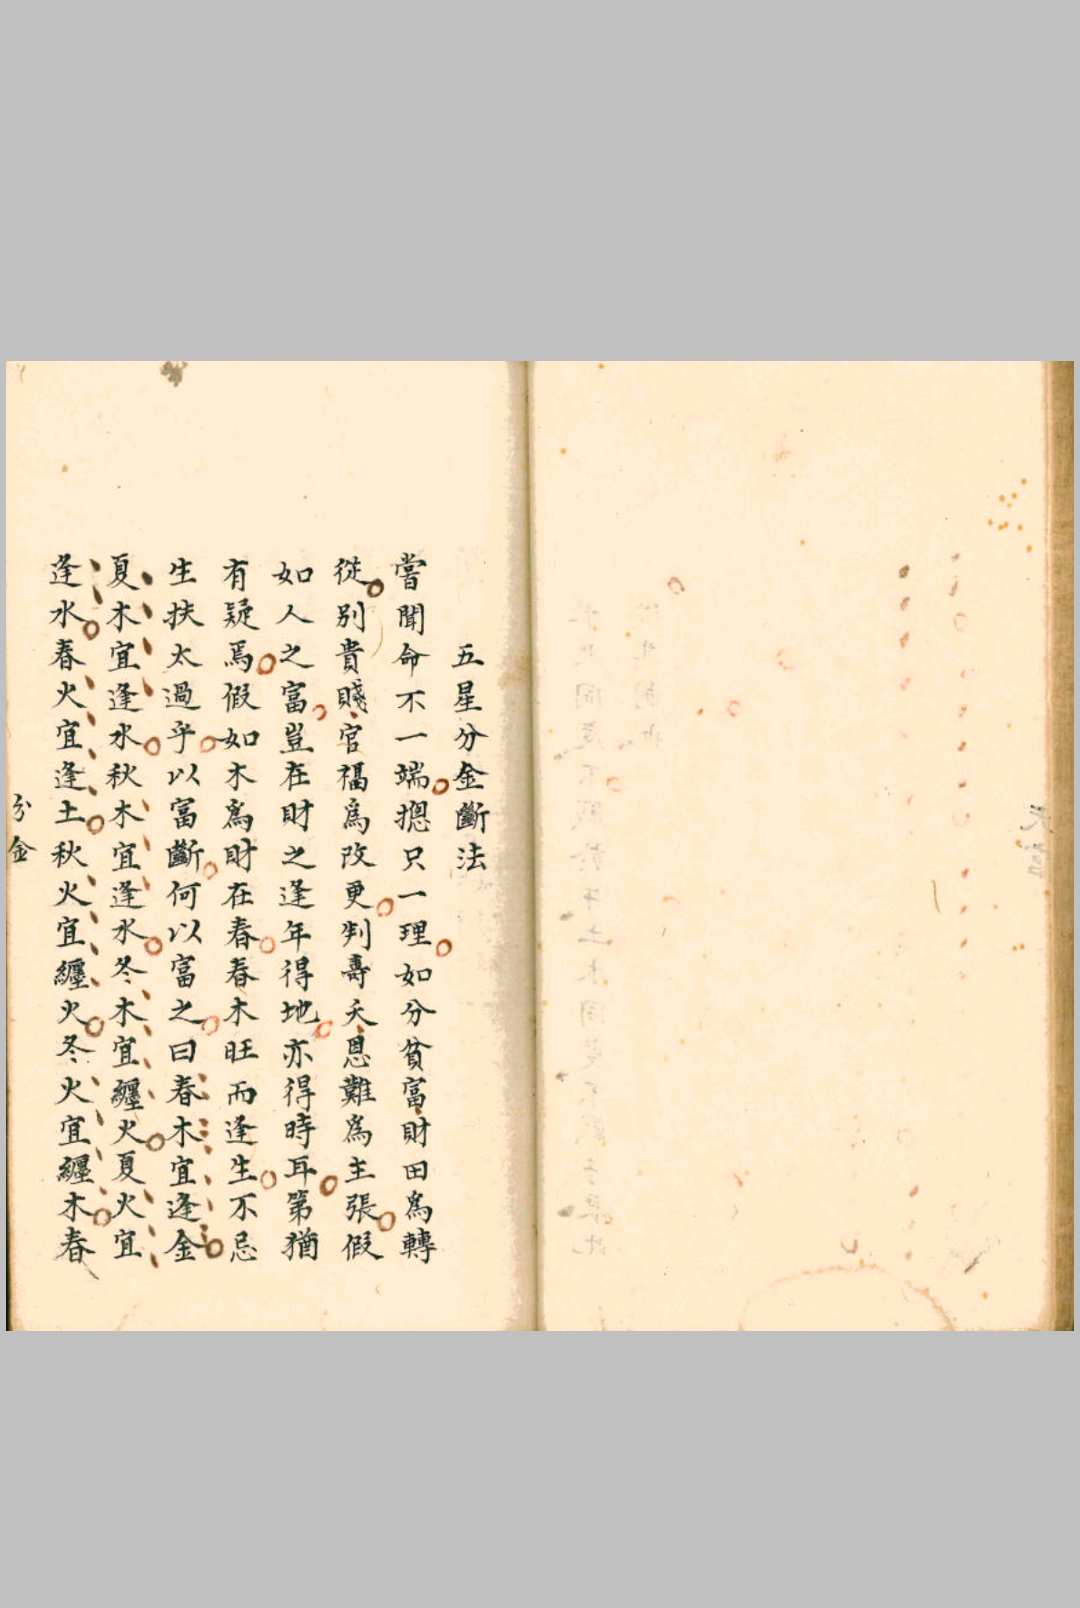 五星分金斷法
嘗聞命不一端摠只一理如分貧富財田爲轉
從別貴賤官福爲改更判壽夭恩難爲主張假
如人之富豈在財之逢年得地亦得時耳第猶
有疑焉假如木爲財在春春木旺而逢生不忌
生扶太過乎以富斷何以富之曰春木宜逢金
夏木宜逢水秋木宜逢水冬木宜纒火夏火宜
逢水春火宜逢土秋火宜纒火冬火宜纒木春
分金